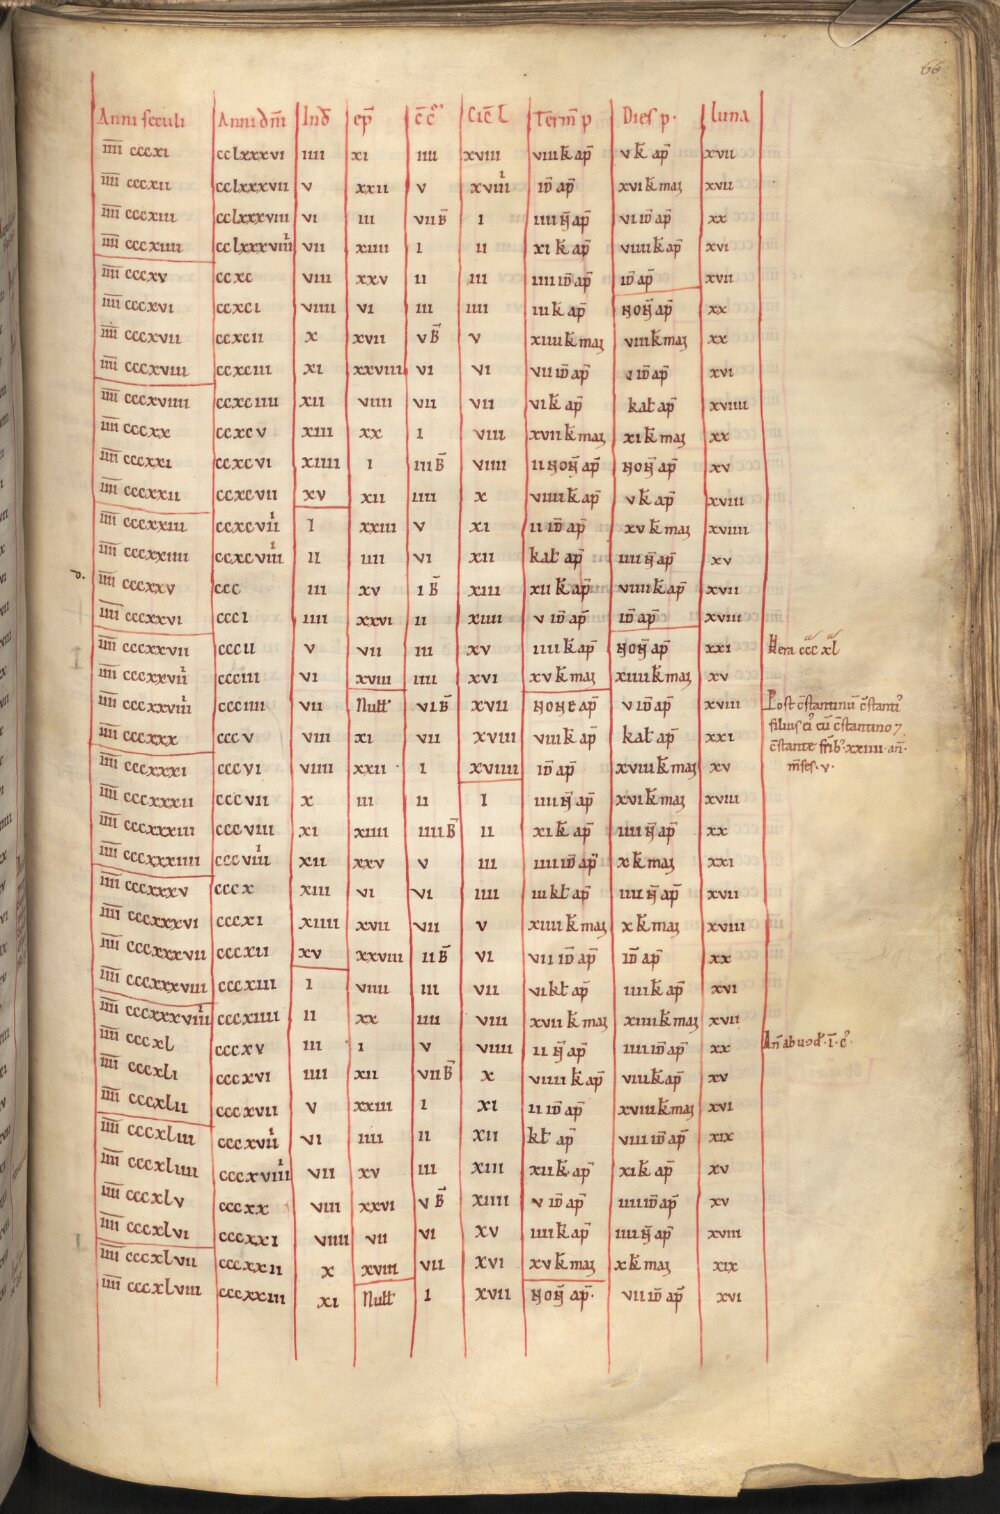 66
Anni seculi Anni dm̄i Ind ep̄ c̄c̄ Cicl Term̄ p Dies p. luna
īīīī cccxi cclxxxvi iiii xi iiii xviii viii k̄ ap̄ v k̄ ap̄ xvii
īīīī cccxii cclxxxvii v xxii v xviiii id̄ ap̄ xvi k̄ maӡ xvii
īīīī cccxiii cclxxxviii vi iii vii b̄ i iiii n̄ ap̄ vi id̄ ap̄ xx
īīīī cccxiiii cclxxxviiii vii xiiii i ii xi k̄ ap̄ viiii k̄ ap̄ xvi
īīīī cccxv ccxc viii xxv ii iii iiii id̄ ap̄ id̄ ap̄ xvii
īīīī cccxvi ccxci viiii vi iii iiii iii k ap̄ non̄ ap̄ xx
īīīī cccxvii ccxcii x xvii v b̄ v xiiii k̄ maӡ viii k̄ maӡ xx
īīīī cccxviii ccxciii xi xxviii vi vi vii id̄ ap̄ id̄ ap̄ xvi
īīīī cccxviiii ccxciiii xii viiii vii vii vi k̄ ap̄ kal̄ ap̄ xviiii
īīīī cccxx ccxcv xiii xx i viii xvii k̄ maӡ xi k̄ maӡ xx
īīīī cccxxi ccxcvi xiiii i iii b̄ viiii ii non̄ ap̄ non̄ ap̄ xv
īīīī cccxxii ccxcvii xv xii iiii x viiii k̄ ap̄ v k̄ ap̄ xviii
īīīī cccxxiii ccxcviii i xxiii v xi ii id̄ ap̄ xv k̄ maӡ xviiii
īīīī cccxxiiii ccxcviiii ii iiii vi xii kal̄ ap̄ iiii n̄ ap̄ xv
īīīī cccxxv ccc iii xv i b̄ xiii xii k̄ ap̄ viiii k̄ ap̄ xvii
īīīī cccxxvi ccci iiii xxvi ii xiiii v id̄ ap̄ id̄ ap̄ xviii
īīīī cccxxvii cccii v vii iii xv iiii k̄ ap̄ non̄ ap̄ xxi Hera ccc xl
īīīī cccxxviii ccciii vi xviii iiii xvi xv k̄ maӡ xiiii k̄ maӡ xv
īīīī cccxxviiii ccciiii vii Null' vi b̄ xvii none ap̄ v id̄ ap̄ xviii Post c̄stantinū c̄stanti'
filius ei' cū c̄stantino 7
īīīī cccxxx cccv viii xi vii xviii viii k̄ ap̄ kal̄ ap̄ xxi c̄stante fr̄ib' xxiiii an̄.
īīīī cccxxxi cccvi viiii xxii i xviiii id̄ ap̄ xviii k̄ maӡ xv m̄ses. v.
īīīī cccxxxii cccvii x iii ii i iiii n̄ ap̄ xvi k̄ maӡ xviii
īīīī cccxxxiii cccviii xi xiiii iiii b̄ ii xi k̄ ap̄ iiii n̄ ap̄ xx
īīīī cccxxxiiii cccviiii xii xxv v iii iiii id̄ ap̄ x k̄ maӡ xxi
īīīī cccxxxv cccx xiii vi vi iiii iii kl̄ ap̄ iiii n̄ ap̄ xvii
īīīī cccxxxvi cccxi xiiii xvii vii v xiiii k̄ maӡ x k̄ maӡ xviii
īīīī cccxxxvii cccxii xv xxviii ii b̄ vi vii id̄ ap̄ id̄ ap̄ xx
īīīī cccxxxviii cccxiii i viiii iii vii vi kl̄ ap̄ iiii k̄ ap̄ xvi
īīīī cccxxxviiii cccxiiii ii xx iiii viii xvii k̄ maӡ xiiii k̄ maӡ xvii
īīīī cccxl cccxv iii i v viiii ii n̄ ap̄ iiii id̄ ap̄ xx
īīīī cccxli cccxvi iiii xii vii b̄ x viiii k̄ ap̄ viii k̄ ap̄ xv
īīīī cccxlii cccxvii v xxiii i xi ii id̄ ap̄ xviii k̄ maӡ xvi
īīīī cccxliii cccxviii vi iiii ii xii kl̄ ap̄ viii id̄ ap̄ xix
īīīī cccxliiii cccxviiii vii xv iii xiii xii k̄ ap̄ xi k̄ ap̄ xv
īīīī cccxlv cccxx viii xxvi v b̄ xiiii v id̄ ap̄ iiii id̄ ap̄ xv
īīīī cccxlvi cccxxi viiii vii vi xv iiii k̄ ap̄ iiii n̄ ap̄ xviii
īīīī cccxlvii cccxxii x xviii vii xvi xv k̄ maӡ x k̄ maӡ xix
īīīī cccxlviii cccxxiii xi Null' i xvii non̄ ap̄. vii id̄ ap̄ xvi